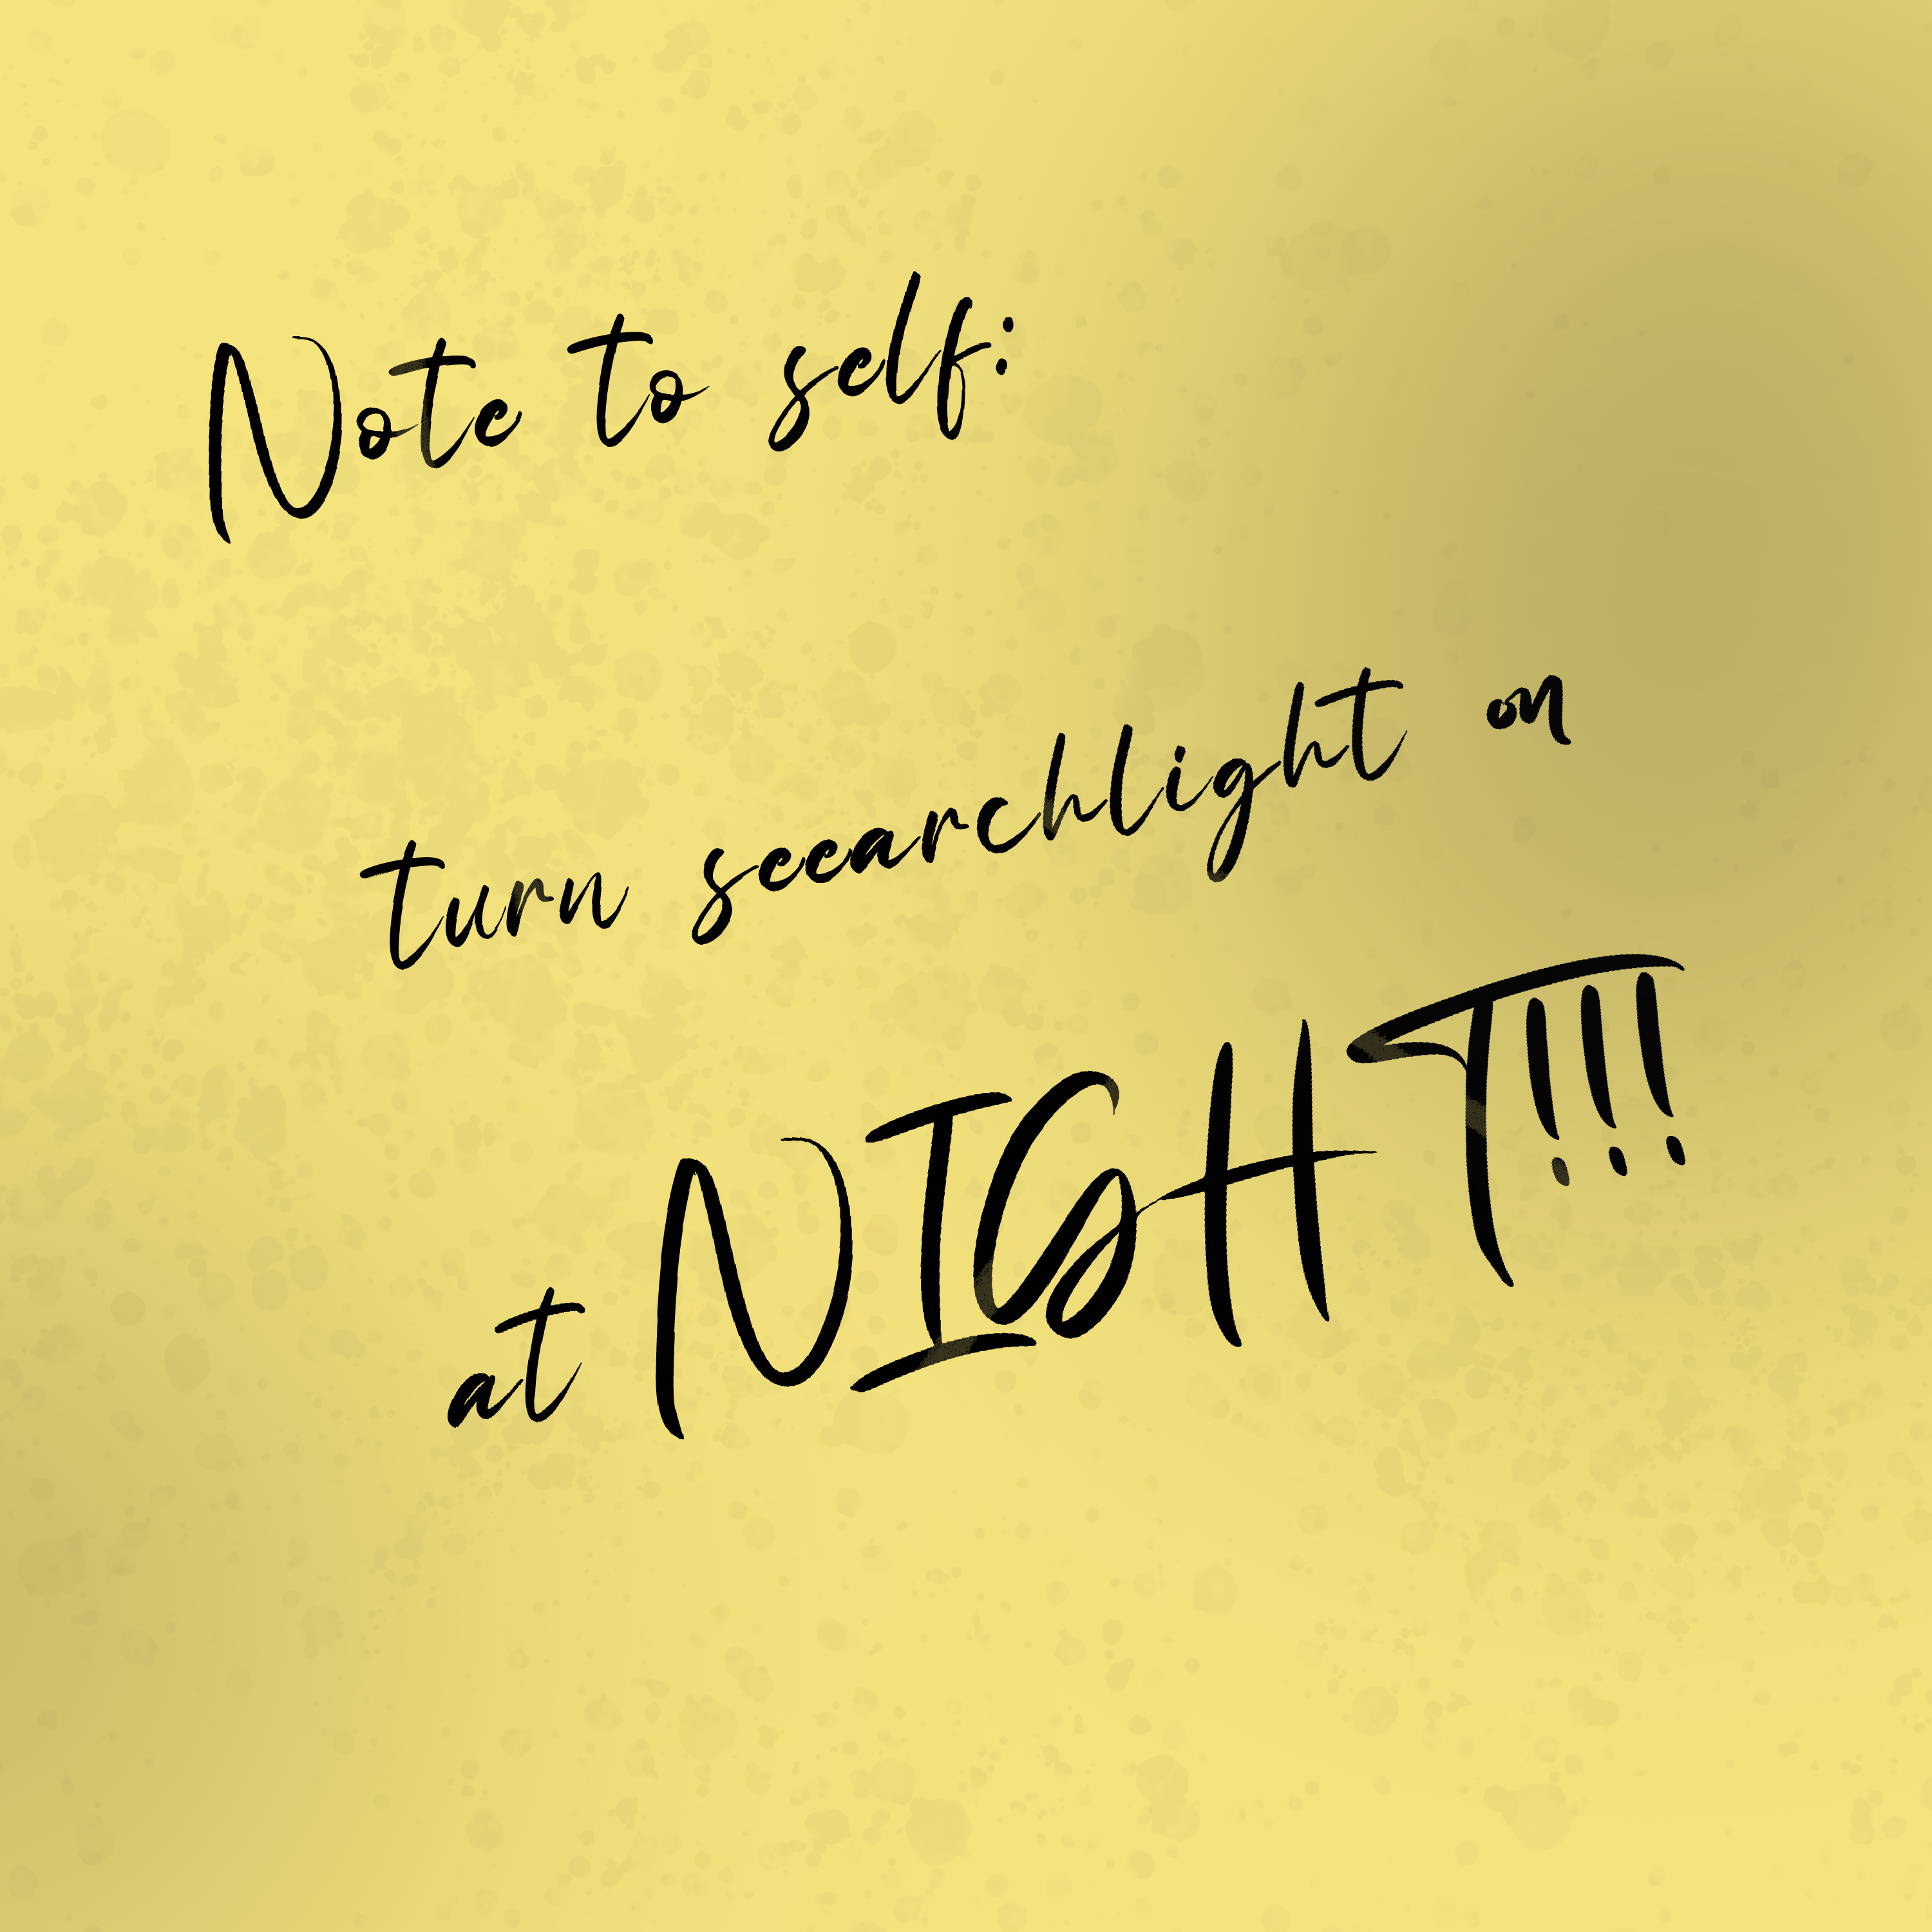 Note to self:
turn seearchlight on
at NIGHT!!!